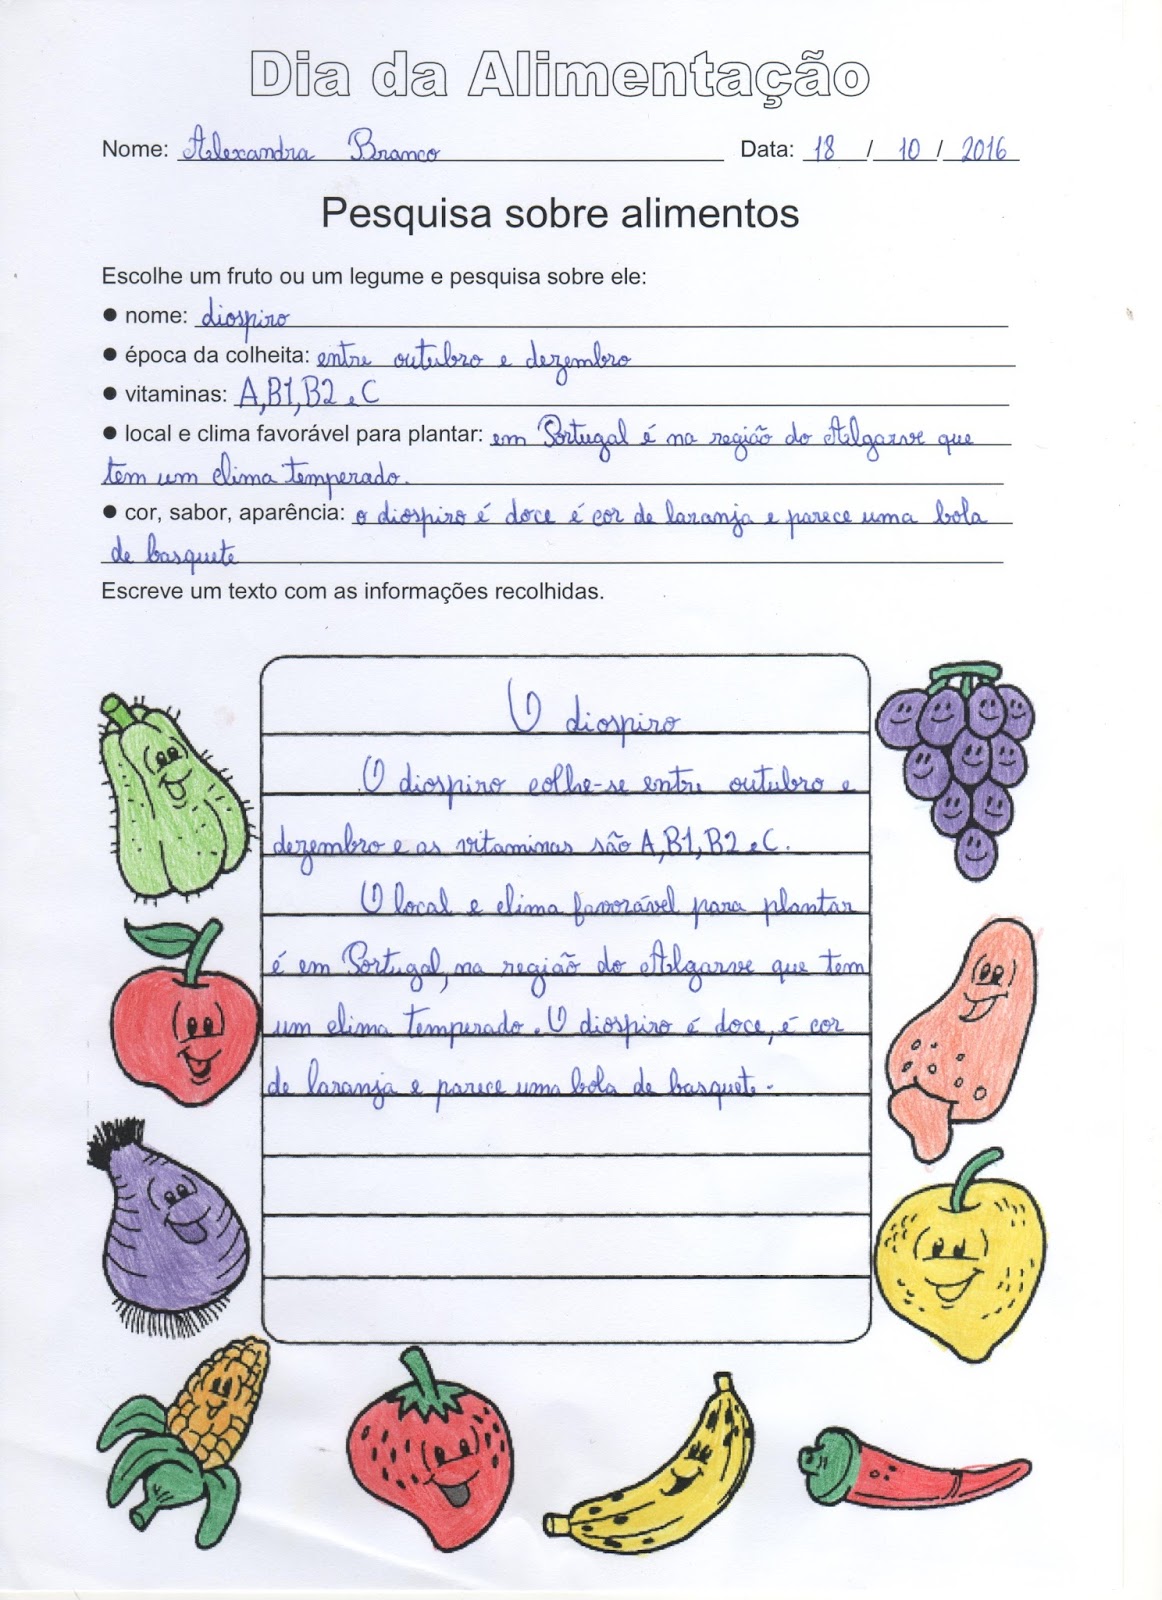 Dia da Alimentação
Nome: Alexandra Branco Data: 18 / 10 / 2016
Pesquisa sobre alimentos
Escolhe um fruto ou um legume e pesquisa sobre ele:
● nome: diospiro
● época da colheita: entre outubro e dezembro
● vitaminas: A, B1, B2 e C
● local e clima favorável para plantar: em Portugal é na região do Algarve que
tem um clima temperado.
● cor, sabor, aparência: o diospiro é doce é cor de laranja e parece uma bola
de basquete
Escreve um texto com as informações recolhidas.
O diospiro
O diospiro colhe-se entre outubro e
dezembro e as vitaminas são A, B1, B2 e C.
O local e clima favorável para plantar
é em Portugal, na região do Algarve que tem
um clima temperado. O diospiro é doce, é cor
de laranja e parece uma bola de basquete.